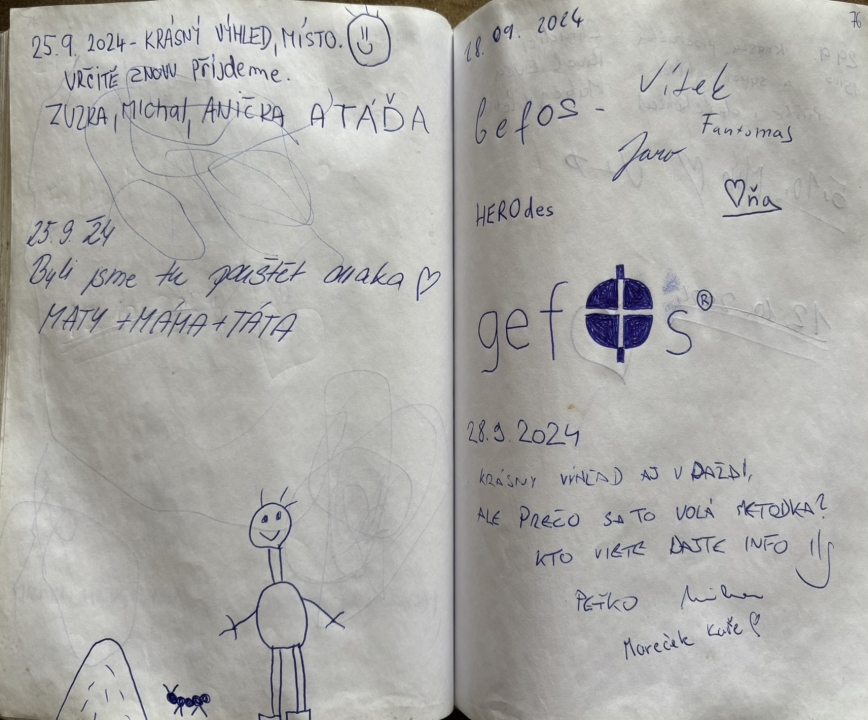 25.9. 2024 - KRÁSNÝ VÝHLED, MÍSTO.
URČITĚ ZNOVU PŘIJDEME.
ZUZKA, Michal, ANIČKA A TÁĎA
25.9. 24
Byli jsme tu pouštět draka ♡
MATY + MÁMA + TÁTA
76
28.09. 2024
GefOS - Vítek
Fantomas
Jaro
♡ňa
HEROdes
gefos®
28.9.2024
KRÁSNY VÝHĽAD AJ V DAŽDI,
ALE PREČO SA TO VOLÁ METODKA?
KTO VIETE DAJTE INFO
PEŤKO
Mareček Kuře